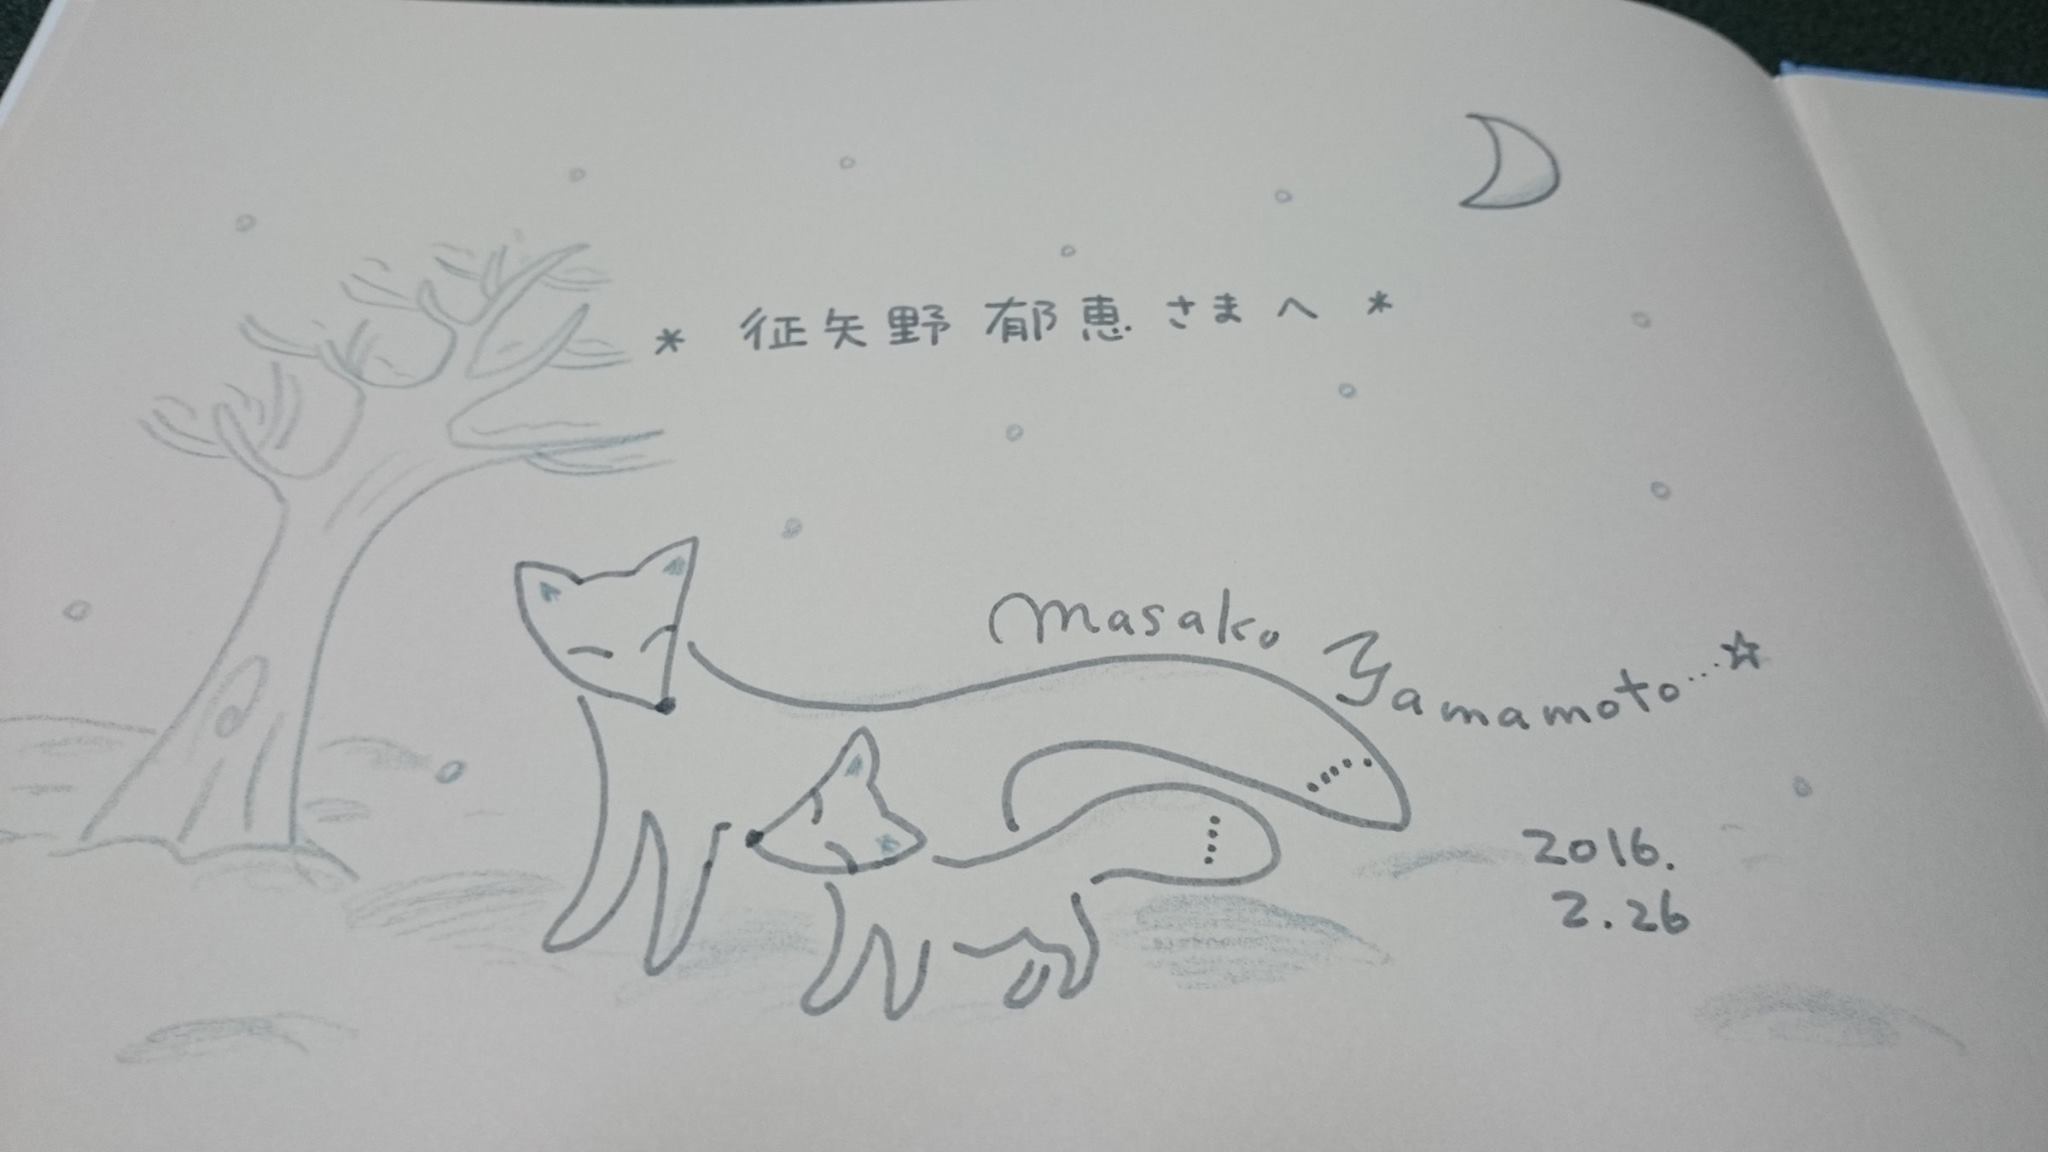 * 征矢野 郁恵 さまへ *
Masako Yamamoto...☆
2016.
2.26